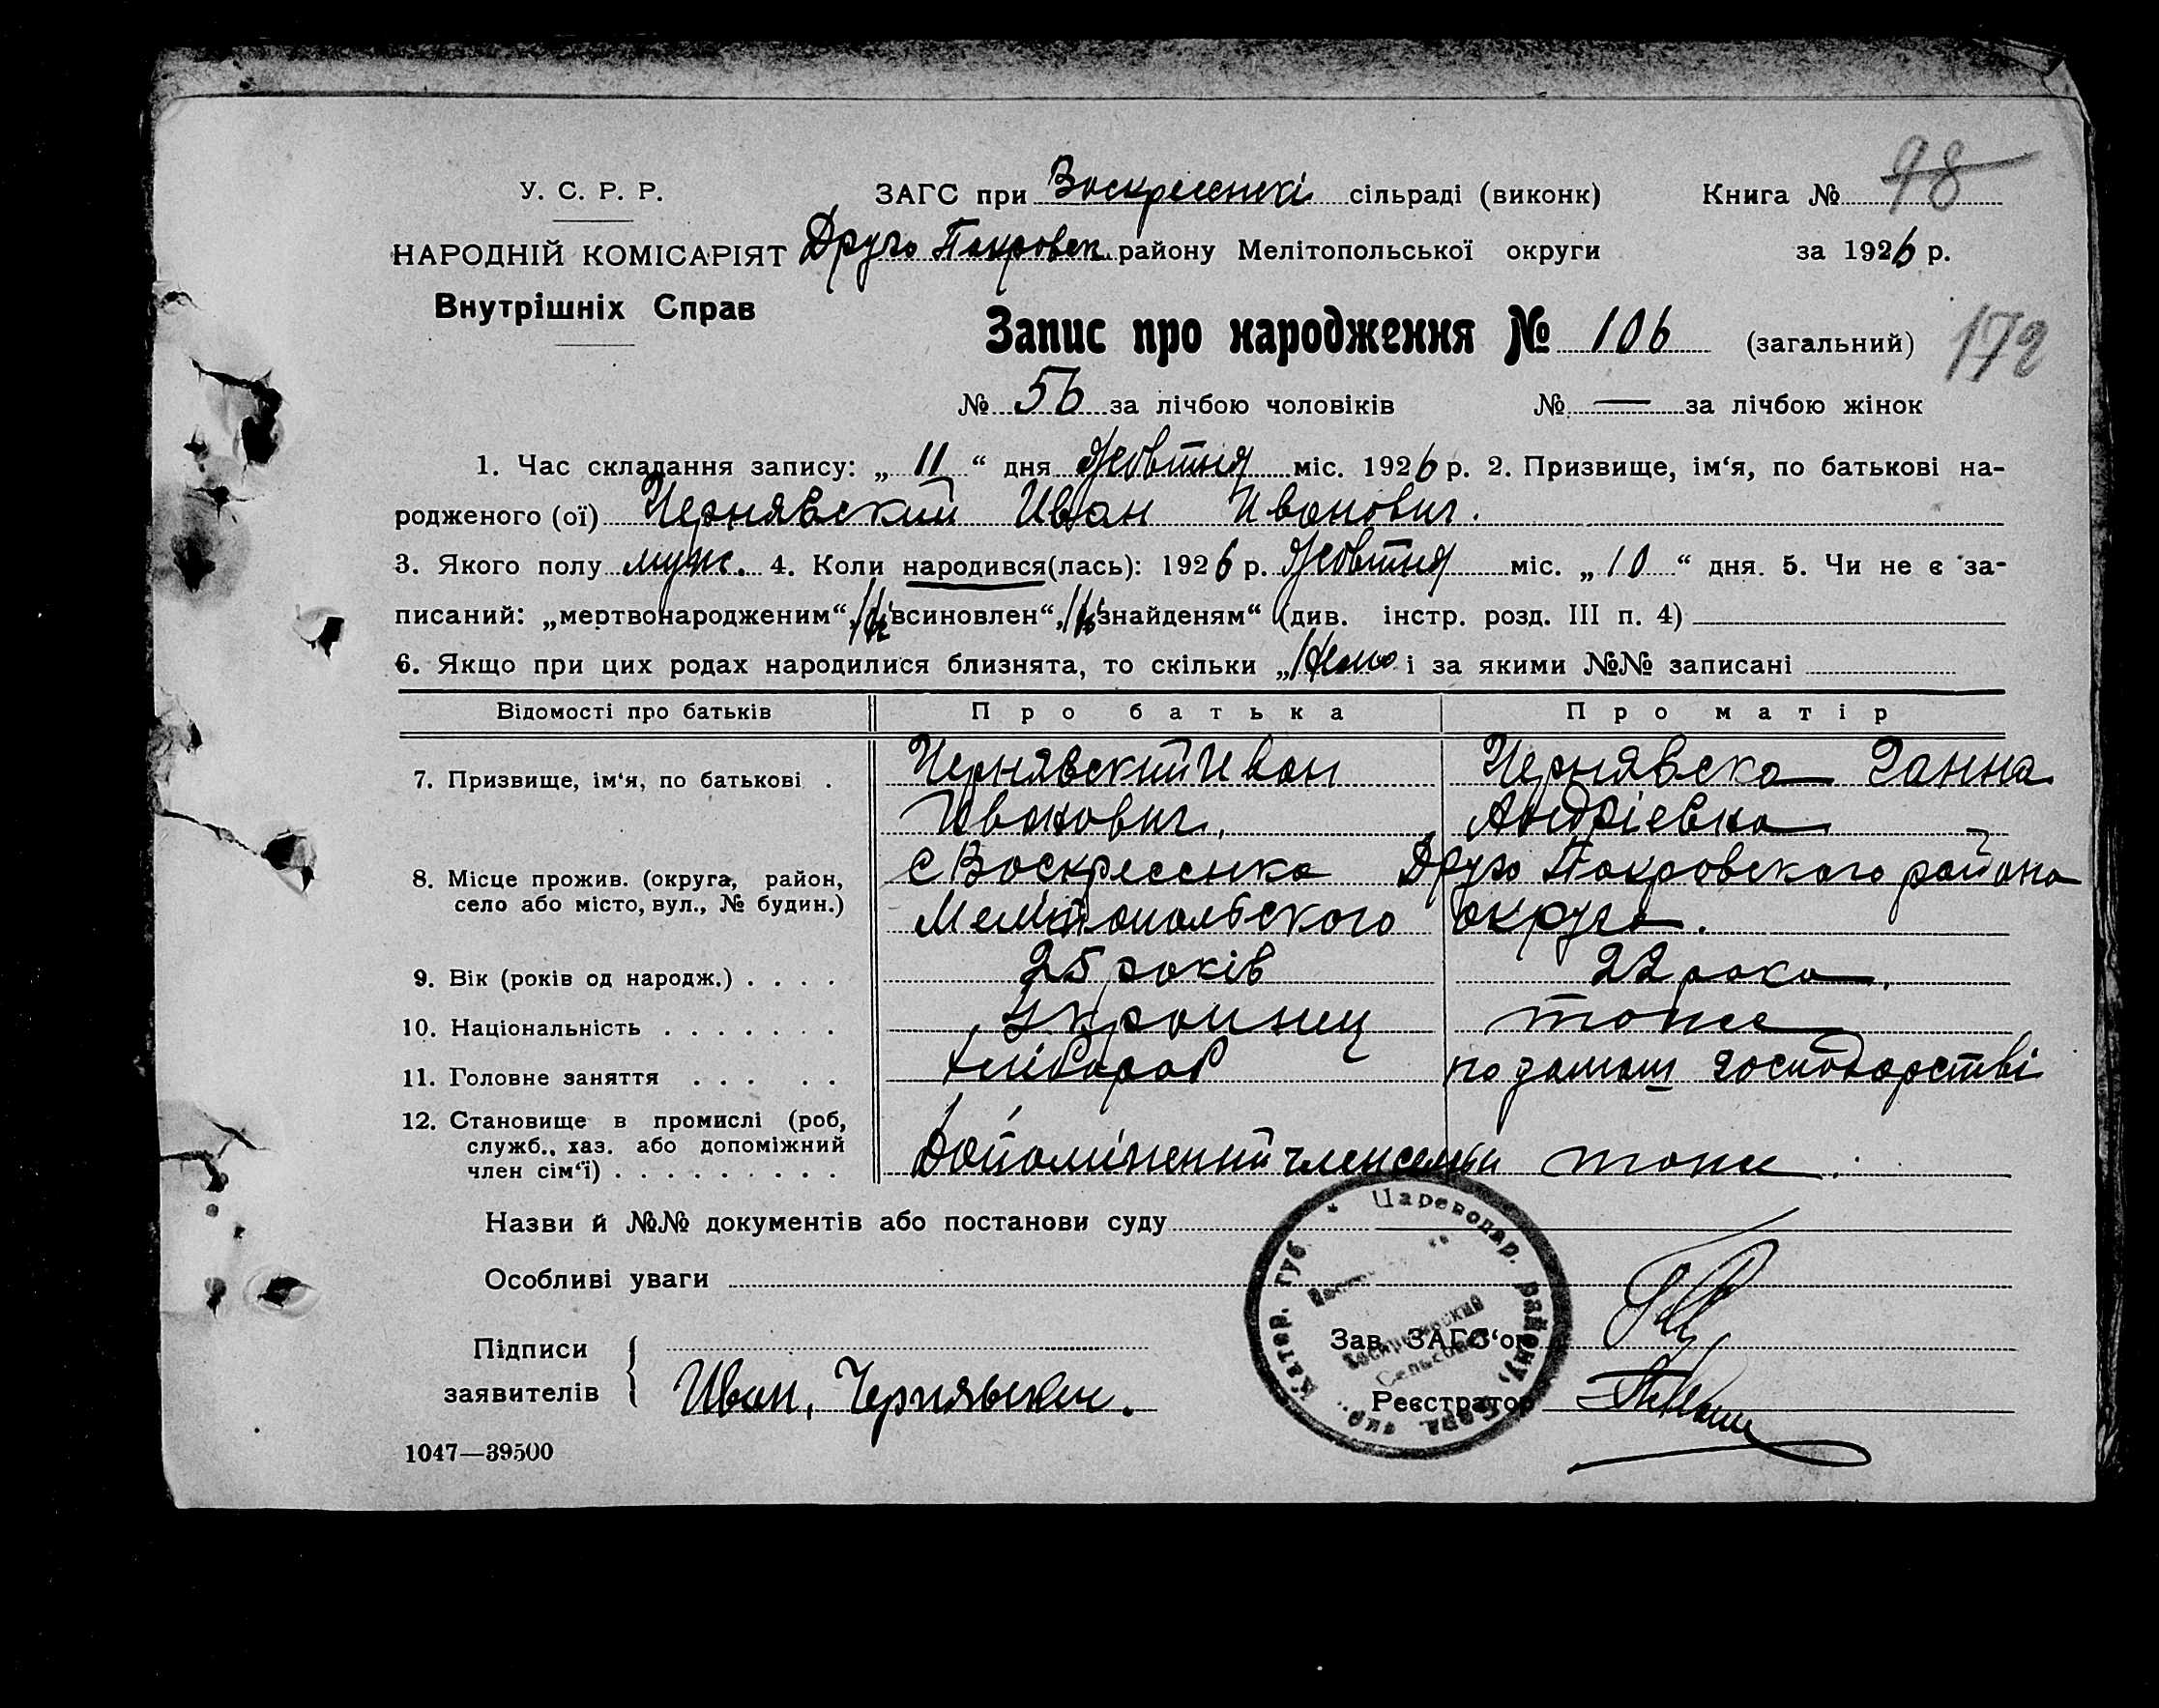 У. С. Р. Р.
ЗАГС при Воскресенскі сільраді (виконк)
Книга № 98
НАРОДНІЙ КОМІСАРІЯТ
Друго Покровск. району Мелітопольської округи
за 1926 р.
Внутрішніх Справ
Запис про народження № 106 (загальний)
172
№ 56 за лічбою чоловіків № — за лічбою жінок
1. Час складання запису: „ 11 “ дня Жовтня міс. 1926 р. 2. Призвище, ім‘я, по батькові на-
родженого (ої) Чернявский Иван Иванович.
3. Якого полу муж. 4. Коли народився(лась): 1926 р. Жовтня міс. „ 10 “ дня. 5. Чи не є за-
писаний: „мертвонародженим“, „всиновлен“, „знайденям“ (див. інстр. розд. III п. 4)
6. Якщо при цих родах народилися близнята, то скільки „ і за якими №№ записані
Відомості про батьків Про батька Про матір
7. Призвище, ім‘я, по батькові . Чернявский Иван Чернявска Ганна
Иванович. Андріевна
8. Місце прожив. (округа, район, с Воскресенка Друго Покровского района
село або місто, вул., № будин.) Мелітопольского округа.
9. Вік (років од народж.) . . . . 25 років 22 рока.
10. Національність . . . . . . . Украинец тоже
11. Головне заняття . . . . . Хлібороб по домаш господарстві
12. Становище в промислі (роб,
служб., хаз. або допоміжний
член сім‘ї) . . . . . . . . . Допоміжний член семьи тоже.
Назви й №№ документів або постанови суду
Особливі уваги
Цареводар. району, Бердянск. окр. Катер. губ.
Воскресенский
Сельсовет
Підписи
заявителів
Зав. ЗАГС‘ом
Иван, Чернявский.
Реєстратор
1047—39500